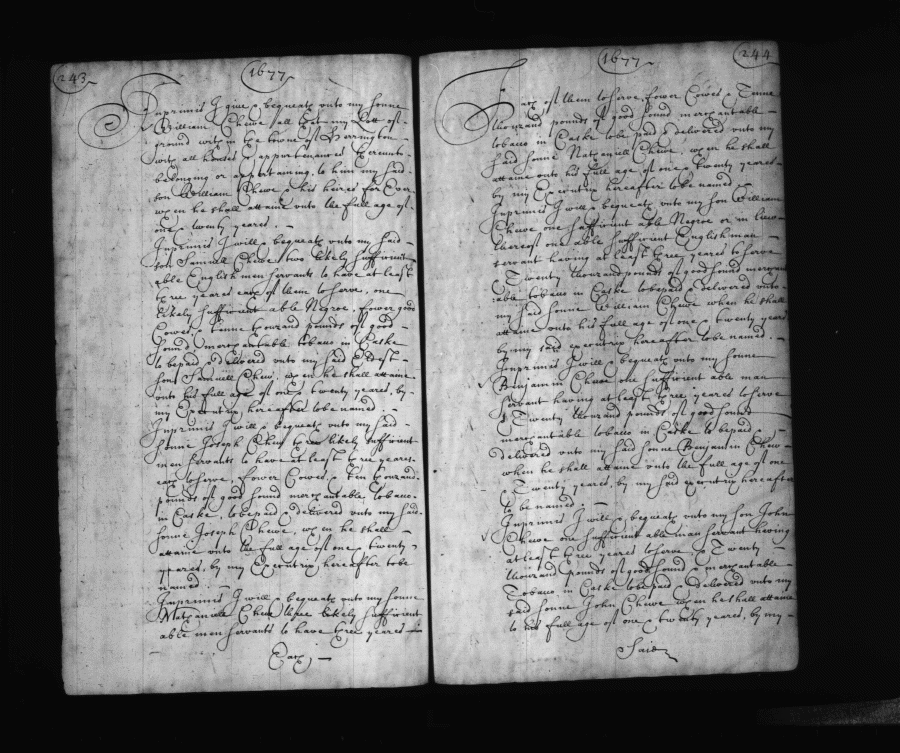 243
1677
Inprimis I give & bequeath unto my sonne
William Chewe all that my Lott of
ground with in the towne of Herrington
with all houses & appertenances thereunto
belonging or appertaining, to him my said
son William Chewe & his heires for Ever
when he shall attaine unto the full age of
one & twenty yeares.
Inprimis I will & bequeath unto my said
son Samuell Chewe two likely sufficient
able English men servants to have at least
three yeares each of them to serve, one
likely sufficient able Negroe, fower good
Cowes, & tenne thousand pounds of good
sound merchantable tobaco in Caske
to be paid & delivered unto my said Eldest
sonn Samuell Chew, when he shall attaine
unto his full age of one & twenty yeares, by
my Executrix hereafter to be named.
Inprimis I will & bequeath unto my said
sonne Joseph Chew three likely sufficient
men servants to have at least three yeares
each to serve, fower Cowes, & ten thousand
pounds of good sound merchantable tobaco
in Caske, to be paid & delivered unto my said
sonne Joseph Chewe, when he shall
attaine unto the full age of one & twenty
yeares, by my Executrix hereafter to be
named.
Inprimis I will & bequeath unto my sonne
Nathaniell Chew three likely sufficient
able men servants to have three yeares
Each
1677
244
Each of them to serve, fower Cowes & Tenne
thousand pounds of good sound merchantable
tobaco in Caske to be paid & delivered unto my
said sonne Nathaniell Chewe, when he shall
attaine unto his full age of one & twenty yeares
by my Executrix hereafter to be named
Inprimis I will & bequeath unto my son William
Chewe one sufficient able Negroe or in liew
thereof one able sufficient Englishman
servant having at least three yeares to serve
& Twenty thousand pounds of good sound merchant
able tobaco in Caske to be paid & delivered unto
my said sonne William Chewe when he shall
attaine unto his full age of one & twenty yeares
by my said executrix hereafter to be named.
Inprimis I will & bequeath unto my sonne
Benjamin Chewe one sufficient able man
servant having at least three yeares to serve
& Twenty thousand pounds of good sound
merchantable tobaco in Caske to be paid &
delivered unto my said sonne Benjamin Chew
when he shall attaine unto the full age of one
& Twenty yeares, by my said executrix hereafter
to be named.
Inprimis I will & bequeath unto my son John
Chewe one sufficient able man servant having
at least three yeares to serve & Twenty
thousand pounds of good sound & merchantable
Tobaco in Caske to be paid & delivered unto my
said sonne John Chewe when he shall attaine
to his full age of one & twenty yeares, by my
Said